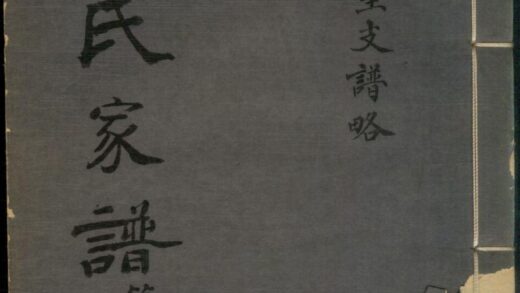 支譜略
氏家譜